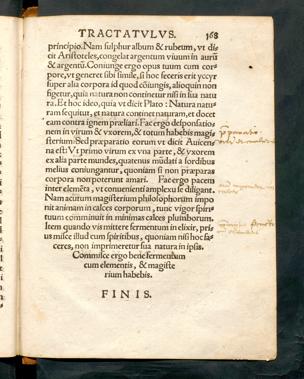 TRACTATVLVS. 168
principio. Nam sulphur album & rubeum, vt di-
cit Aristoteles, congelat argentum viuum in aurũ
& argentũ. Coniunge ergo opus tuum cum cor-
pore, vt generet sibi simile, si hoc feceris erit
super alia corpora id quod cõiungis, alioquin non
figetur, quia natura non continetur nisi in sua natu
ra. Et hoc ideo, quia vt dicit Plato: Natura natu-
ram sequitur, et natura continet naturam, et docet
eam contra ignem præliari. Fac ergo desponsatio
nem in virum & vxorem, & totum habebis magi-
sterium. Sed præparatio eorum vt dicit Auicen
na est: Vt primo virum ex vna parte, & vxorem
ex alia parte mundes, quatenus mũdati a sordibus
melius coniungantur, quoniam si non præparas
corpora non poterunt amari. Fac ergo pacem
inter elemẽta, vt conuenienti amplexu se diligant.
Nam acutum magisterium philosophorum impo
nit animam in calces corporum, tunc vigor spiri-
tuum comminuit in minimas calces plumborum.
Item quando vis mittere fermentum in elixir, pri-
us misce illud cum spiritibus, quoniam nisi hoc fa-
ceres, non imprimeretur sua natura in ipsis.
Commisce ergo bene fermentum
cum elementis, & magiste
rium habebis.
FINIS.